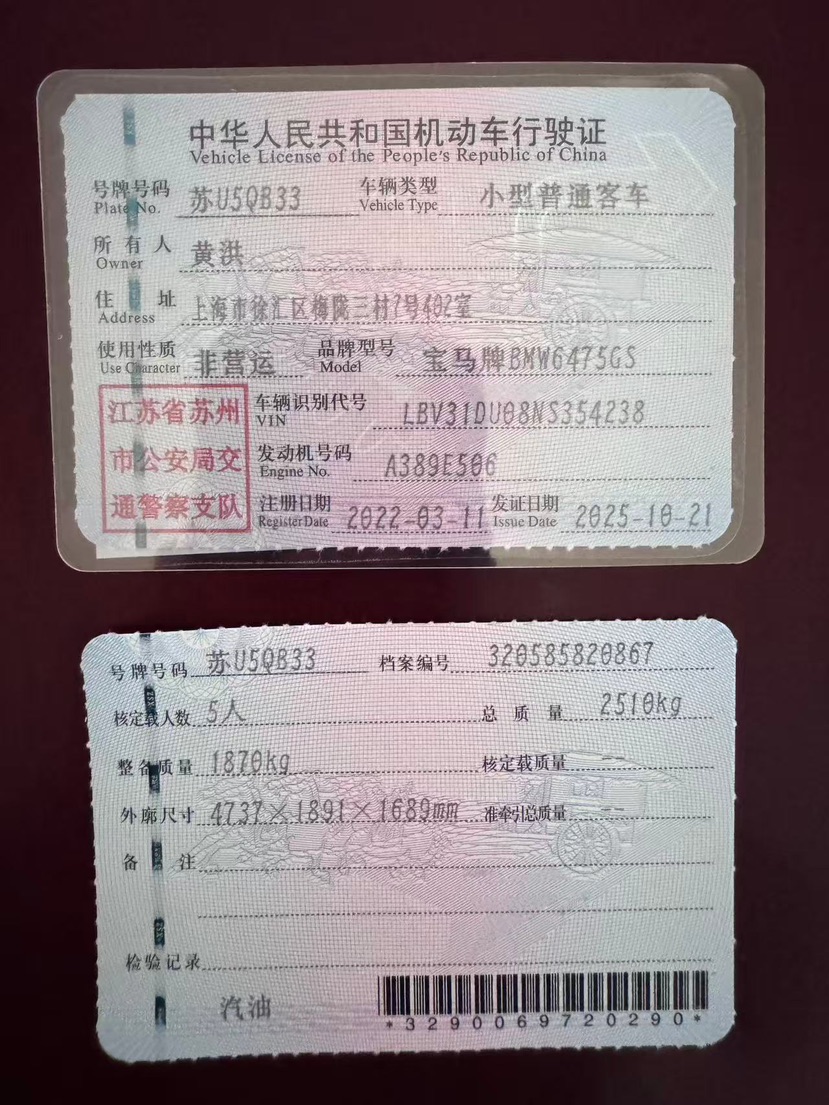 中华人民共和国机动车行驶证
Vehicle License of the People's Republic of China
号牌号码 苏U5QB33 车辆类型 小型普通客车
Plate No. Vehicle Type
所有人 黄洪
Owner
住址 上海市徐汇区梅陇三村7号402室
Address
使用性质 非营运 品牌型号 宝马牌BMW6475GS
Use Character Model
江苏省苏州
市公安局交
通警察支队
车辆识别代号 LBV31DU08NS354238
VIN
发动机号码 A389E506
Engine No.
注册日期 2022-03-11 发证日期 2025-10-21
Register Date Issue Date
号牌号码 苏U5QB33 档案编号 320585820867
核定载人数 5人 总质量 2510kg
整备质量 1870kg 核定载质量 --
外廓尺寸 4737×1891×1689mm 准牵引总质量 --
备注
检验记录
汽油
*3290069720290*